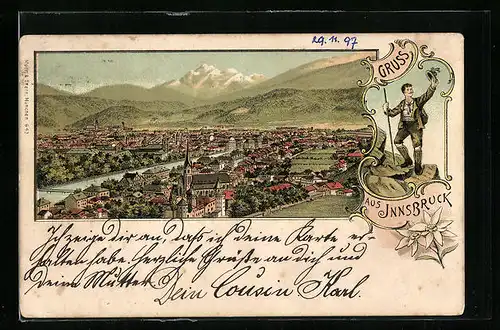 29.11.97
GRUSS
AUS INNSBRUCK
Ich zeige dir an, dass ich deine Karte er-
halten habe. Herzliche Grüsse an dich und
deine Mutter. Dein Cousin Karl.